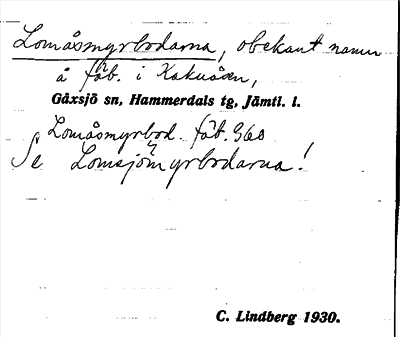 Lomåsmyrbodarna, obekant namn
å fäb. i Kakuåsen,
Gåxsjö sn, Hammerdals tg, Jämtl. l.
Lomåsmyrbod. fäb. 960
Se Lomsjömyrbodarna!
C. Lindberg 1930.